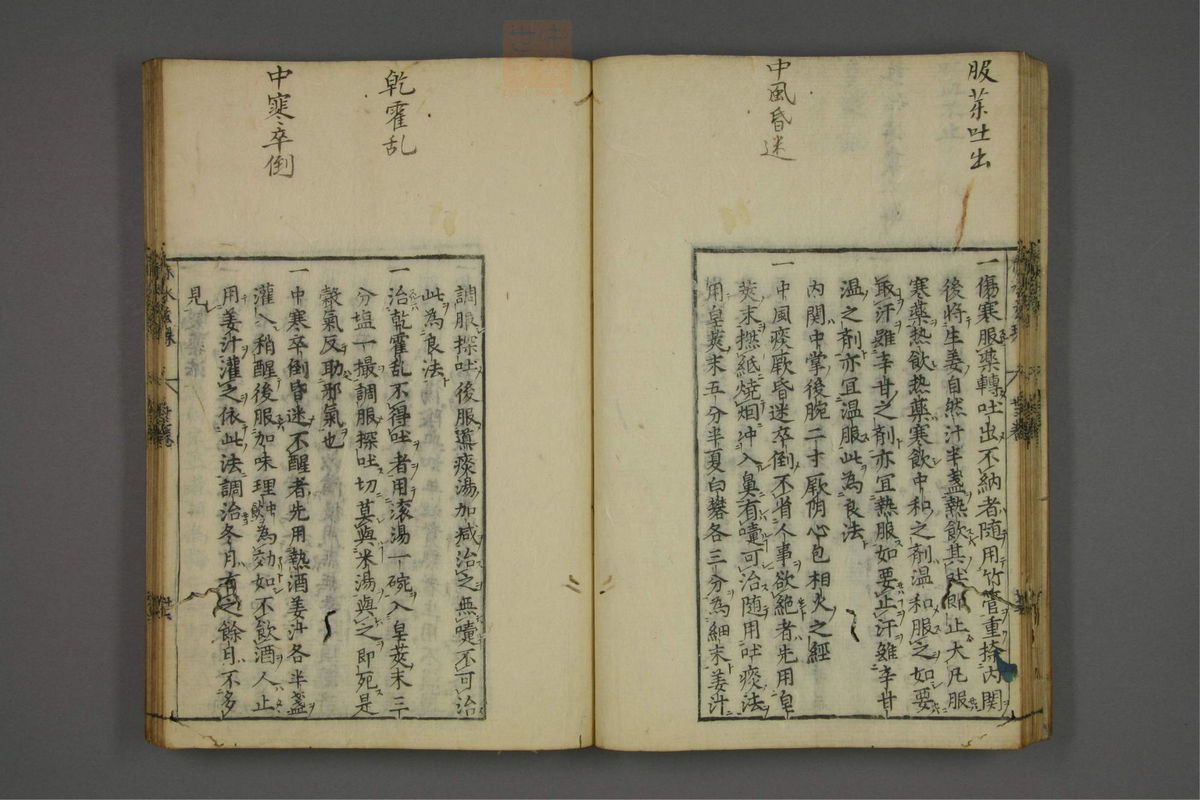 服薬吐出
中風昏迷
一傷寒服薬轉吐出不納者随用竹管重捺内関
後將生姜自然汁半盞熱飲其吐即止大凡服
寒薬熱飲熱薬寒飲中和之剤温和服之如要
取汗雖辛甘之剤亦宜熱服如要止汗雖辛甘
温之剤亦宜温服此為良法
内関中掌後腕二寸厥陰心包相火之經
一中風痰厥昏迷卒倒不省人事欲絶者先用皂
莢末撚紙燒烟冲入鼻有嚏可治随用吐痰法
用皂莢末五分半夏白礬各三分為細末姜汁
乾霍乱
中寒卒倒
調服探吐後服導痰湯加减治之無嚏不可治
此為良法
一治乾霍乱不得吐者用滚湯一碗入皂莢末三
分塩一撮調服探吐切莫與米湯與之即死是
穀氣反助邪氣也
一中寒卒倒昏迷不醒者先用熱酒姜汁各半盞
灌入稍醒後服加味理中飲為効如不飲酒人止
用姜汁灌之依此法調治冬月有之餘月不多
見